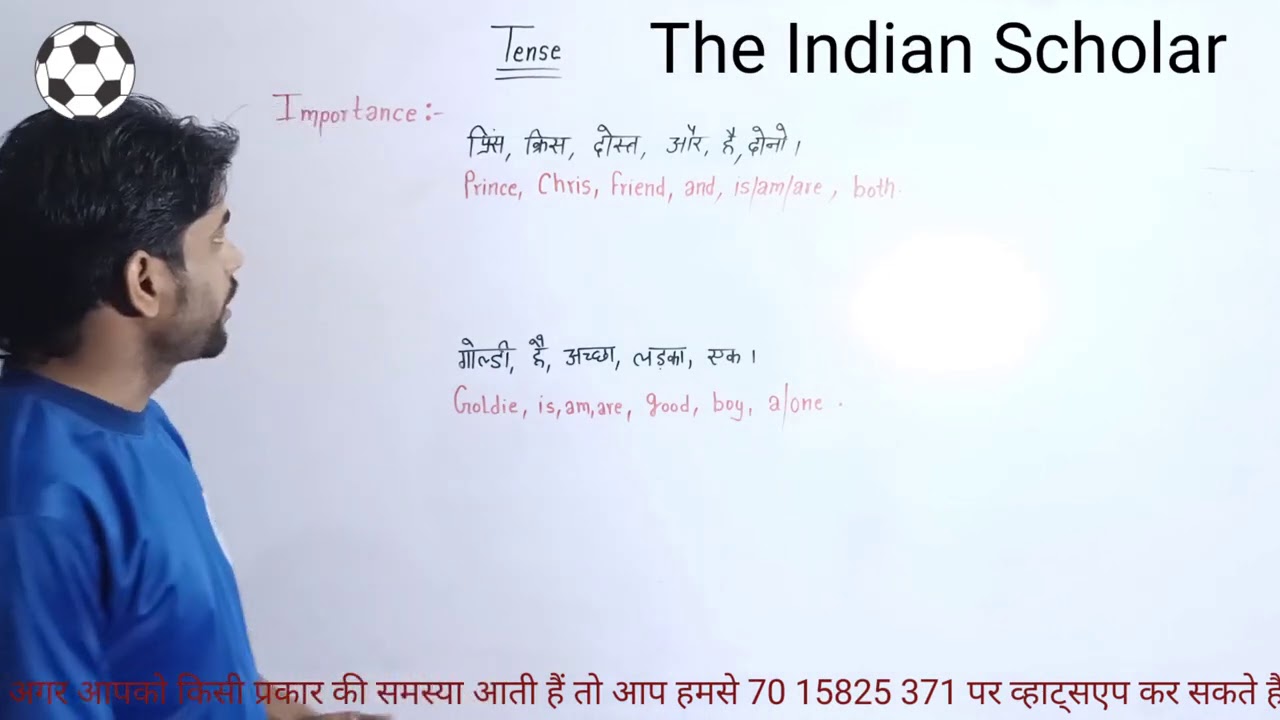 The Indian Scholar
Tense
Importance :-
प्रिंस, क्रिस, दोस्त, और, है, दोनो।
Prince, Chris, friend, and, is/am/are, both.
गोल्डी, है, अच्छा, लड़का, एक।
Goldie, is, am, are, good, boy, a/one.
अगर आपको किसी प्रकार की समस्या आती हैं तो आप हमसे 70 15825 371 पर व्हाट्सएप कर सकते है